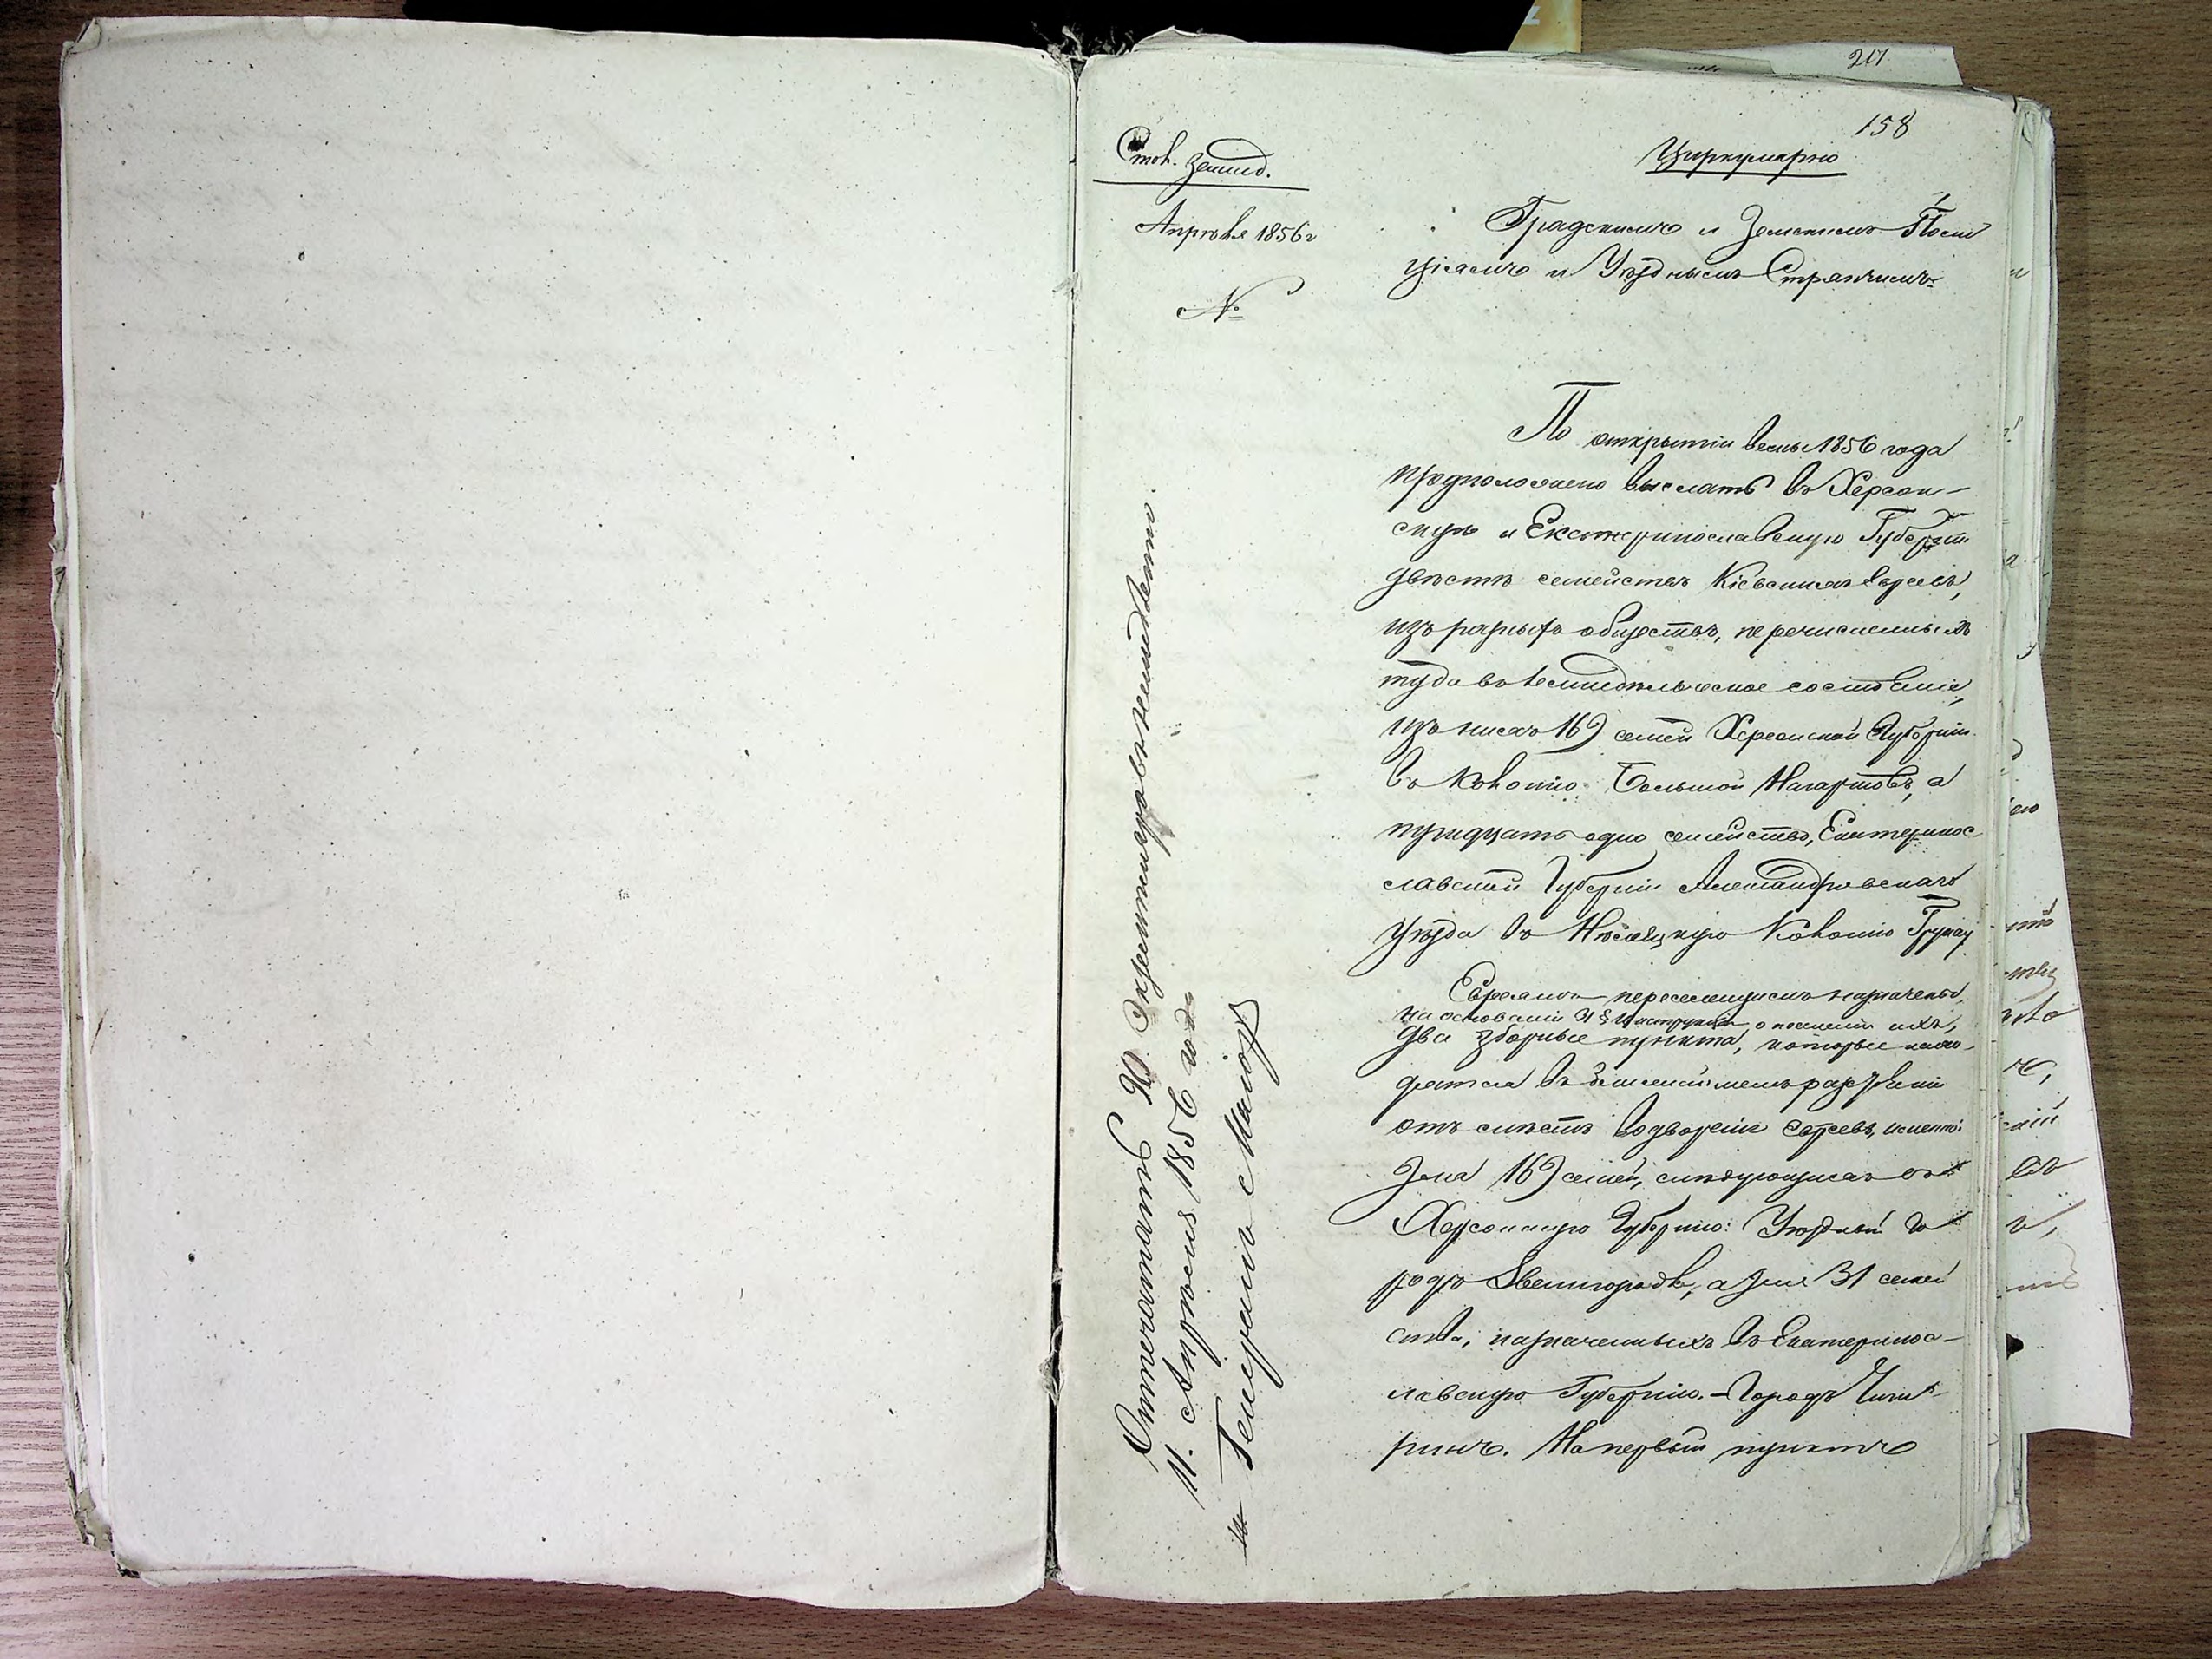 217
158
Стол. землед.
Апрѣля 1856 г
№
Циркулярно
Градскимъ и Земскимъ Поли
ціямъ и Уѣзднымъ Стряпчимъ
По открытіи весны 1856 года
предположено выслать въ Херсон-
скую и Екатеринославскую Губерніи
двѣсти семействъ Кіевскихъ Евреевъ,
изъ разныхъ обществъ, перечисленныхъ
туда въ земледѣльческое состояніе,
изъ нихъ 169 семей Херсонской Губерніи
въ Колонію Большой Нагартовъ, а
тридцать одно семейство, Екатеринос
лавской Губерніи Александровскаго
уѣзда въ Нѣмецкую Колонію Грунау
Евреямъ переселенцамъ назначены,
на основаніи 31 § Инструкціи о поселеніи ихъ,
два зборные пункта, которые нахо-
дятся въ ближайшемъ разстояніи
отъ мѣстъ водворенія Евреевъ, именно:
Для 169 семей, слѣдующихъ въ
Херсонскую Губернію: Уѣздный го
родъ Звенигородк, а для 31 семей
ства, назначенныхъ въ Екатеринос-
лавскую Губернію. - Городъ Чиги-
ринъ. На первый пунктъ
Отпечатать 90 экземпляровъ
11. Апрѣля 1856 года